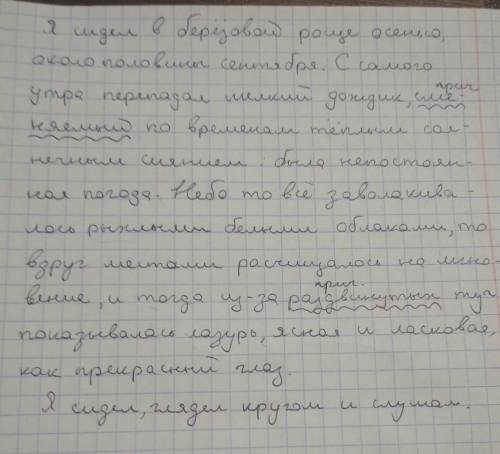 Я сидел в берёзовой роще осенью,
около половины сентября. С самого
прич.
утра перепадал мелкий дождик, сме-
няемый по временам тёплым сол-
нечным сиянием: была непостоян-
ная погода. Небо то всё заволакива-
лось рыхлыми белыми облаками, то
вдруг местами расчищалось на мгно-
прич.
вение, и тогда из-за раздвинутых туч
показывалась лазурь, ясная и ласковая,
как прекрасный глаз.
Я сидел, глядел кругом и слушал.